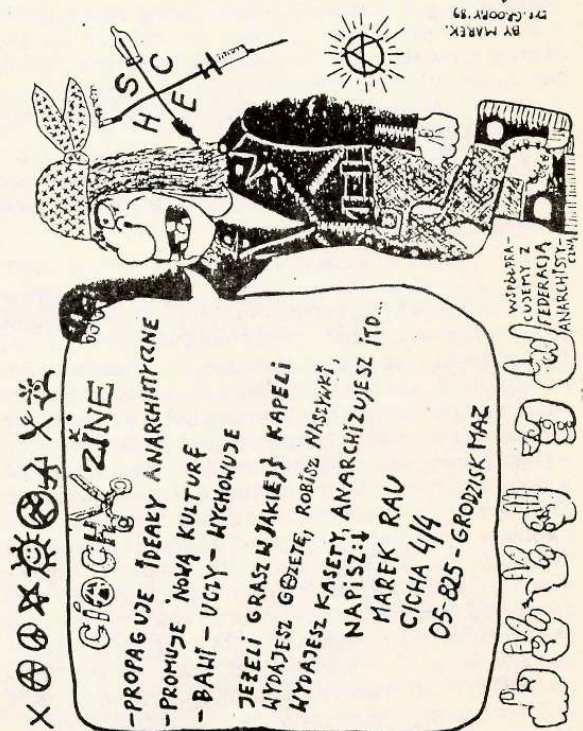 ZINE
-PROPAGUJE IDEAŁY ANARCHISTYCZNE
-PROMUJE NOWĄ KULTURĘ
-BAWI-UCZY-WYCHOWUJE
JEŻELI GRASZ W JAKIEJŚ KAPELI
WYDAJESZ GAZETĘ, ROBISZ NASZYWKI,
WYDAJESZ KASETY, ANARCHIZUJESZ ITD...
NAPISZ:
MAREK RAU
CICHA 4/4
05-825-GRODZISK MAZ
S C
H E
WSPÓŁPRA-
CUJEMY Z
FEDERACJĄ
ANARCHISTY-
CZNĄ
BY MAREK.